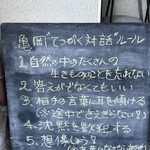 亀岡"てつがく対話"ルール
1.自然の中のたくさんの
生きもののことを忘れない
2.答えがでなくてもいい
3.相手の言葉に耳を傾ける
(※途中でさえぎらない?)
4.沈黙も歓迎する
5.想像しよう